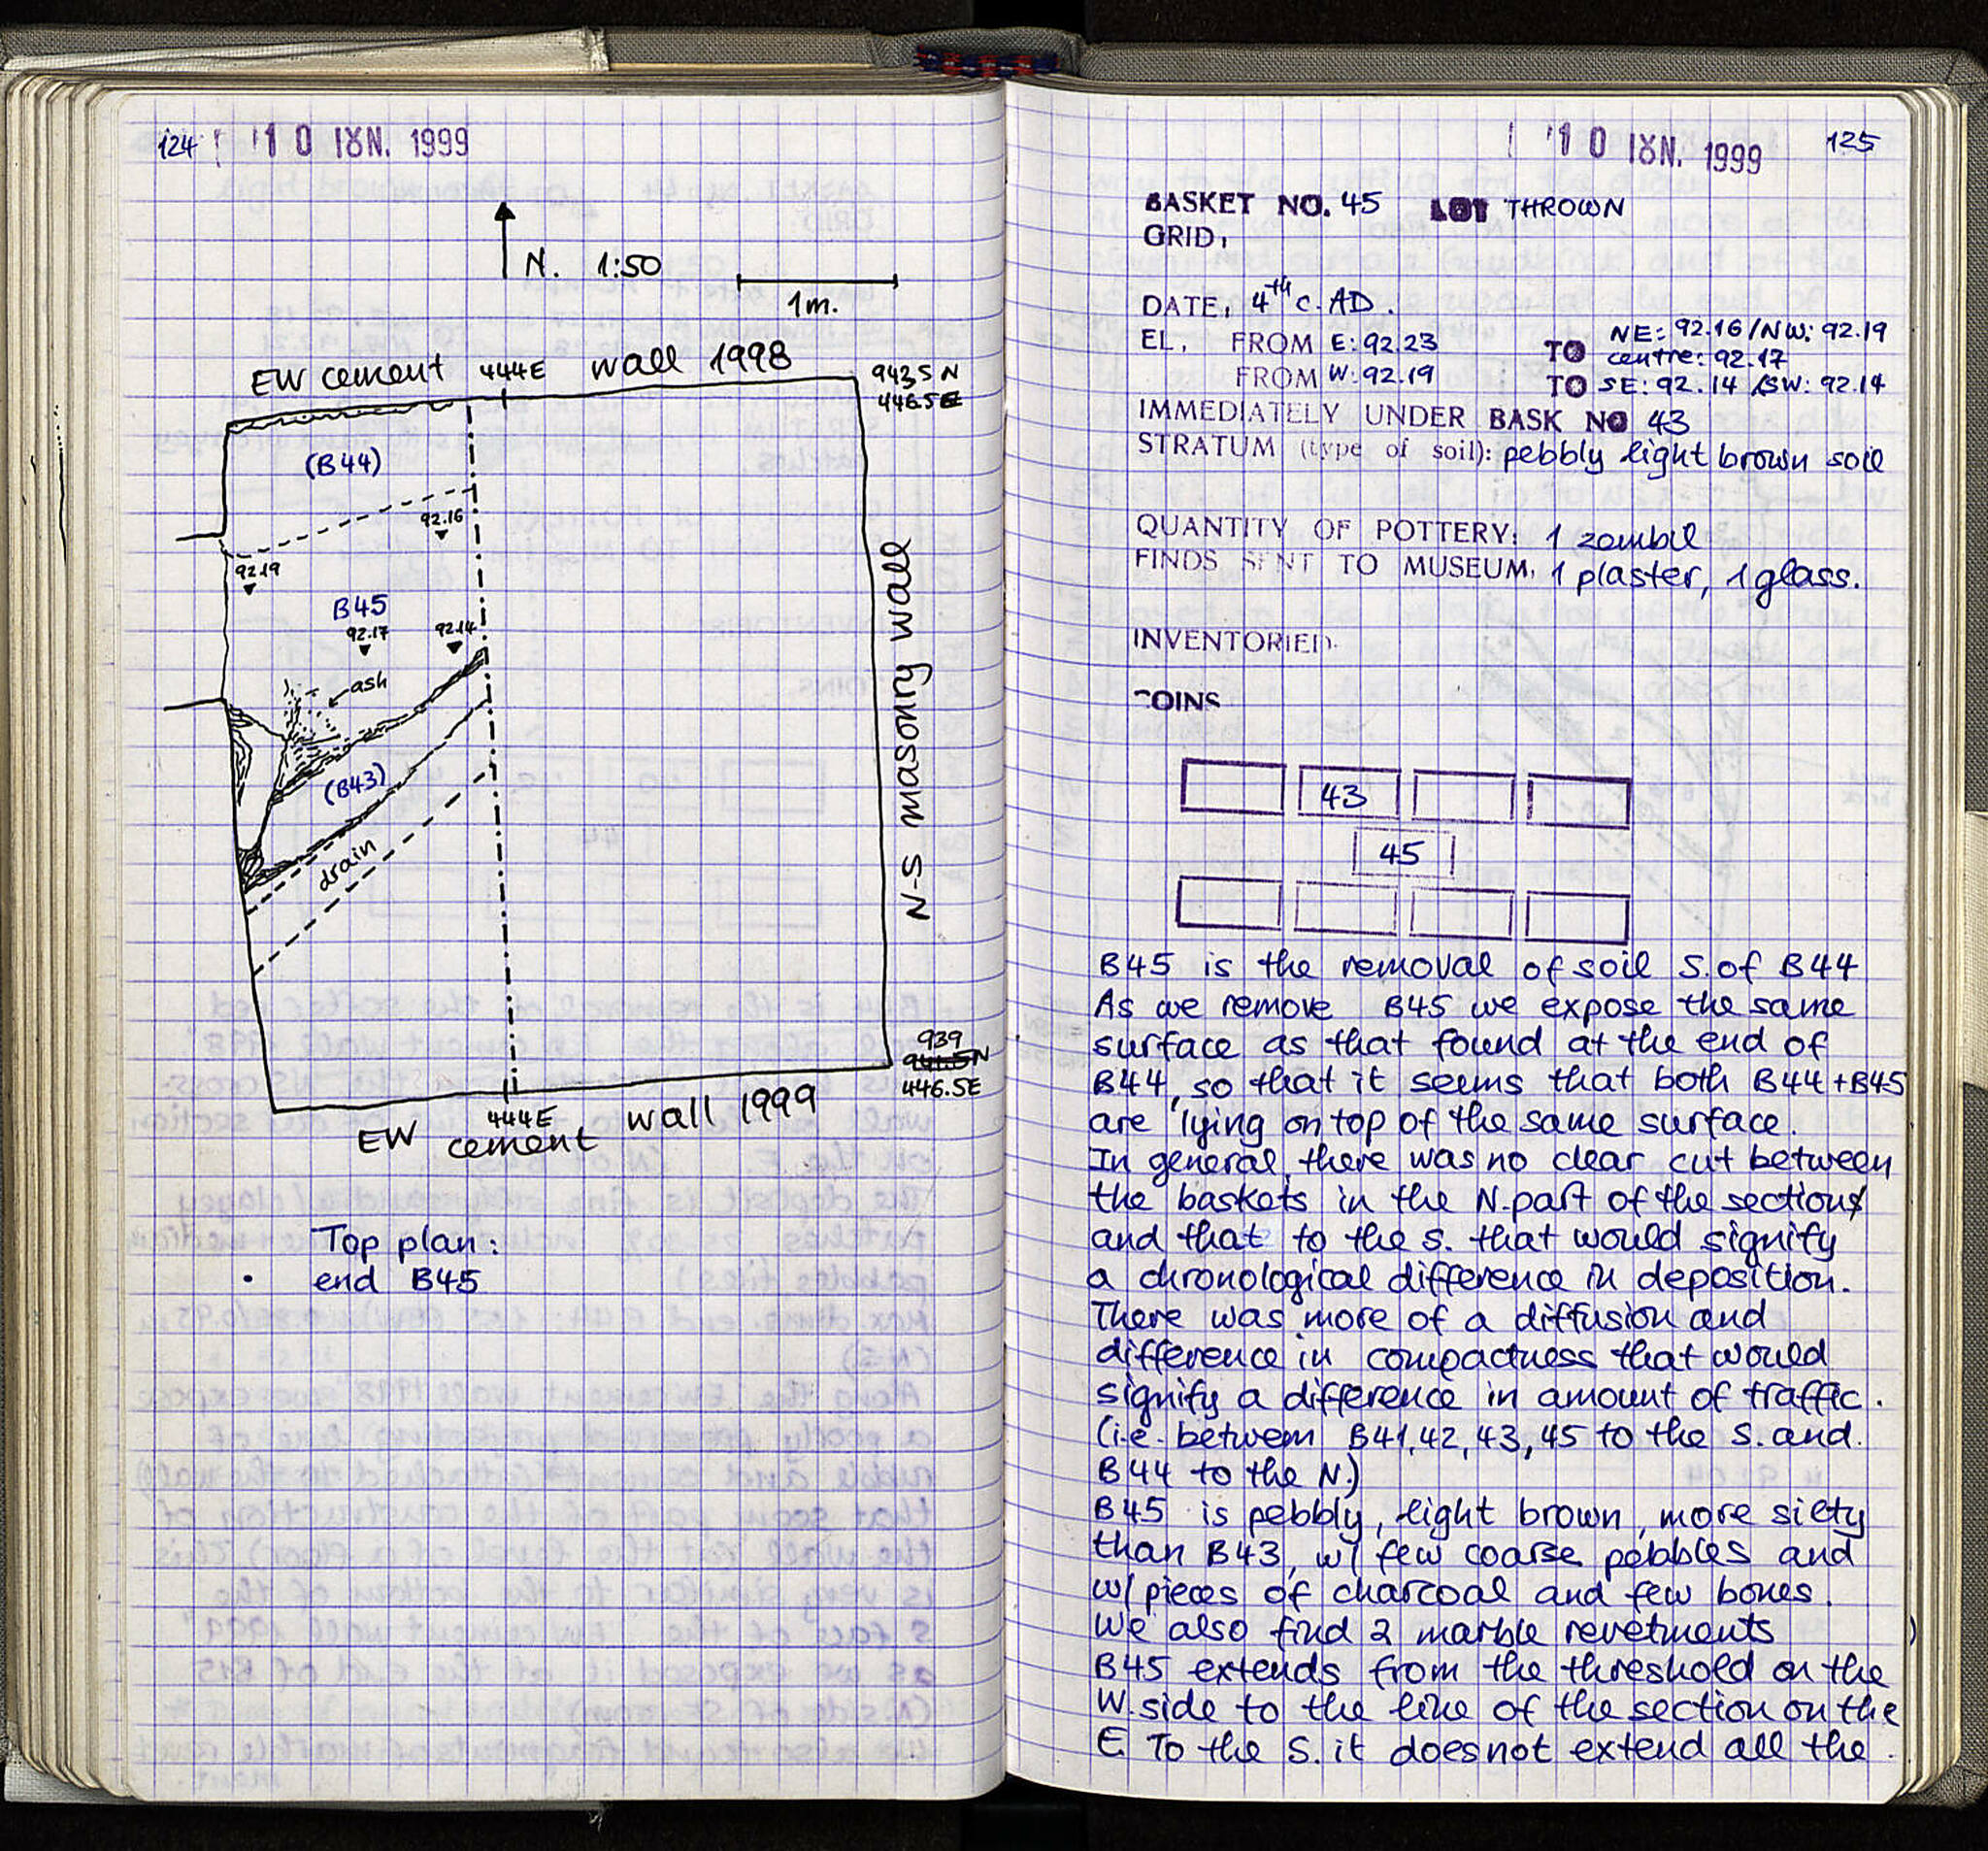 124 10 ΙȢΝ. 1999
N. 1:50
1m.
EW cement 444E wall 1998
943.5 N
446.5E
(B44)
92.16
92.19
B45
92.17 92.14
ash
(B43)
drain
N-S masonry wall
939
446.5E
444E wall 1999
EW cement
Top plan:
end B45
10 ΙȢΝ. 1999 125
BASKET NO. 45 LOT THROWN
GRID,
DATE, 4th c. AD.
EL. FROM E: 92.23 TO NE: 92.16/NW: 92.19
centre: 92.17
FROM W: 92.19 TO SE: 92.14/SW: 92.14
IMMEDIATELY UNDER BASK NO 43
STRATUM (type of soil): pebbly light brown soil
QUANTITY OF POTTERY: 1 zembil
FINDS SENT TO MUSEUM, 1 plaster, 1 glass.
INVENTORIED.
COINS
43
45
B45 is the removal of soil S. of B44
As we remove B45 we expose the same
surface as that found at the end of
B44, so that it seems that both B44+B45
are lying on top of the same surface.
In general, there was no clear cut between
the baskets in the N. part of the section
and that to the S. that would signify
a chronological difference in deposition.
There was more of a diffusion and
difference in compactness that would
signify a difference in amount of traffic.
(i.e. between B41, 42, 43, 45 to the S. and
B44 to the N.)
B45 is pebbly, light brown, more silty
than B43, w/ few coarse pebbles and
w/ pieces of charcoal and few bones.
We also find 2 marble revetments
B45 extends from the threshold on the
W. side to the line of the section on the
E. To the S. it does not extend all the